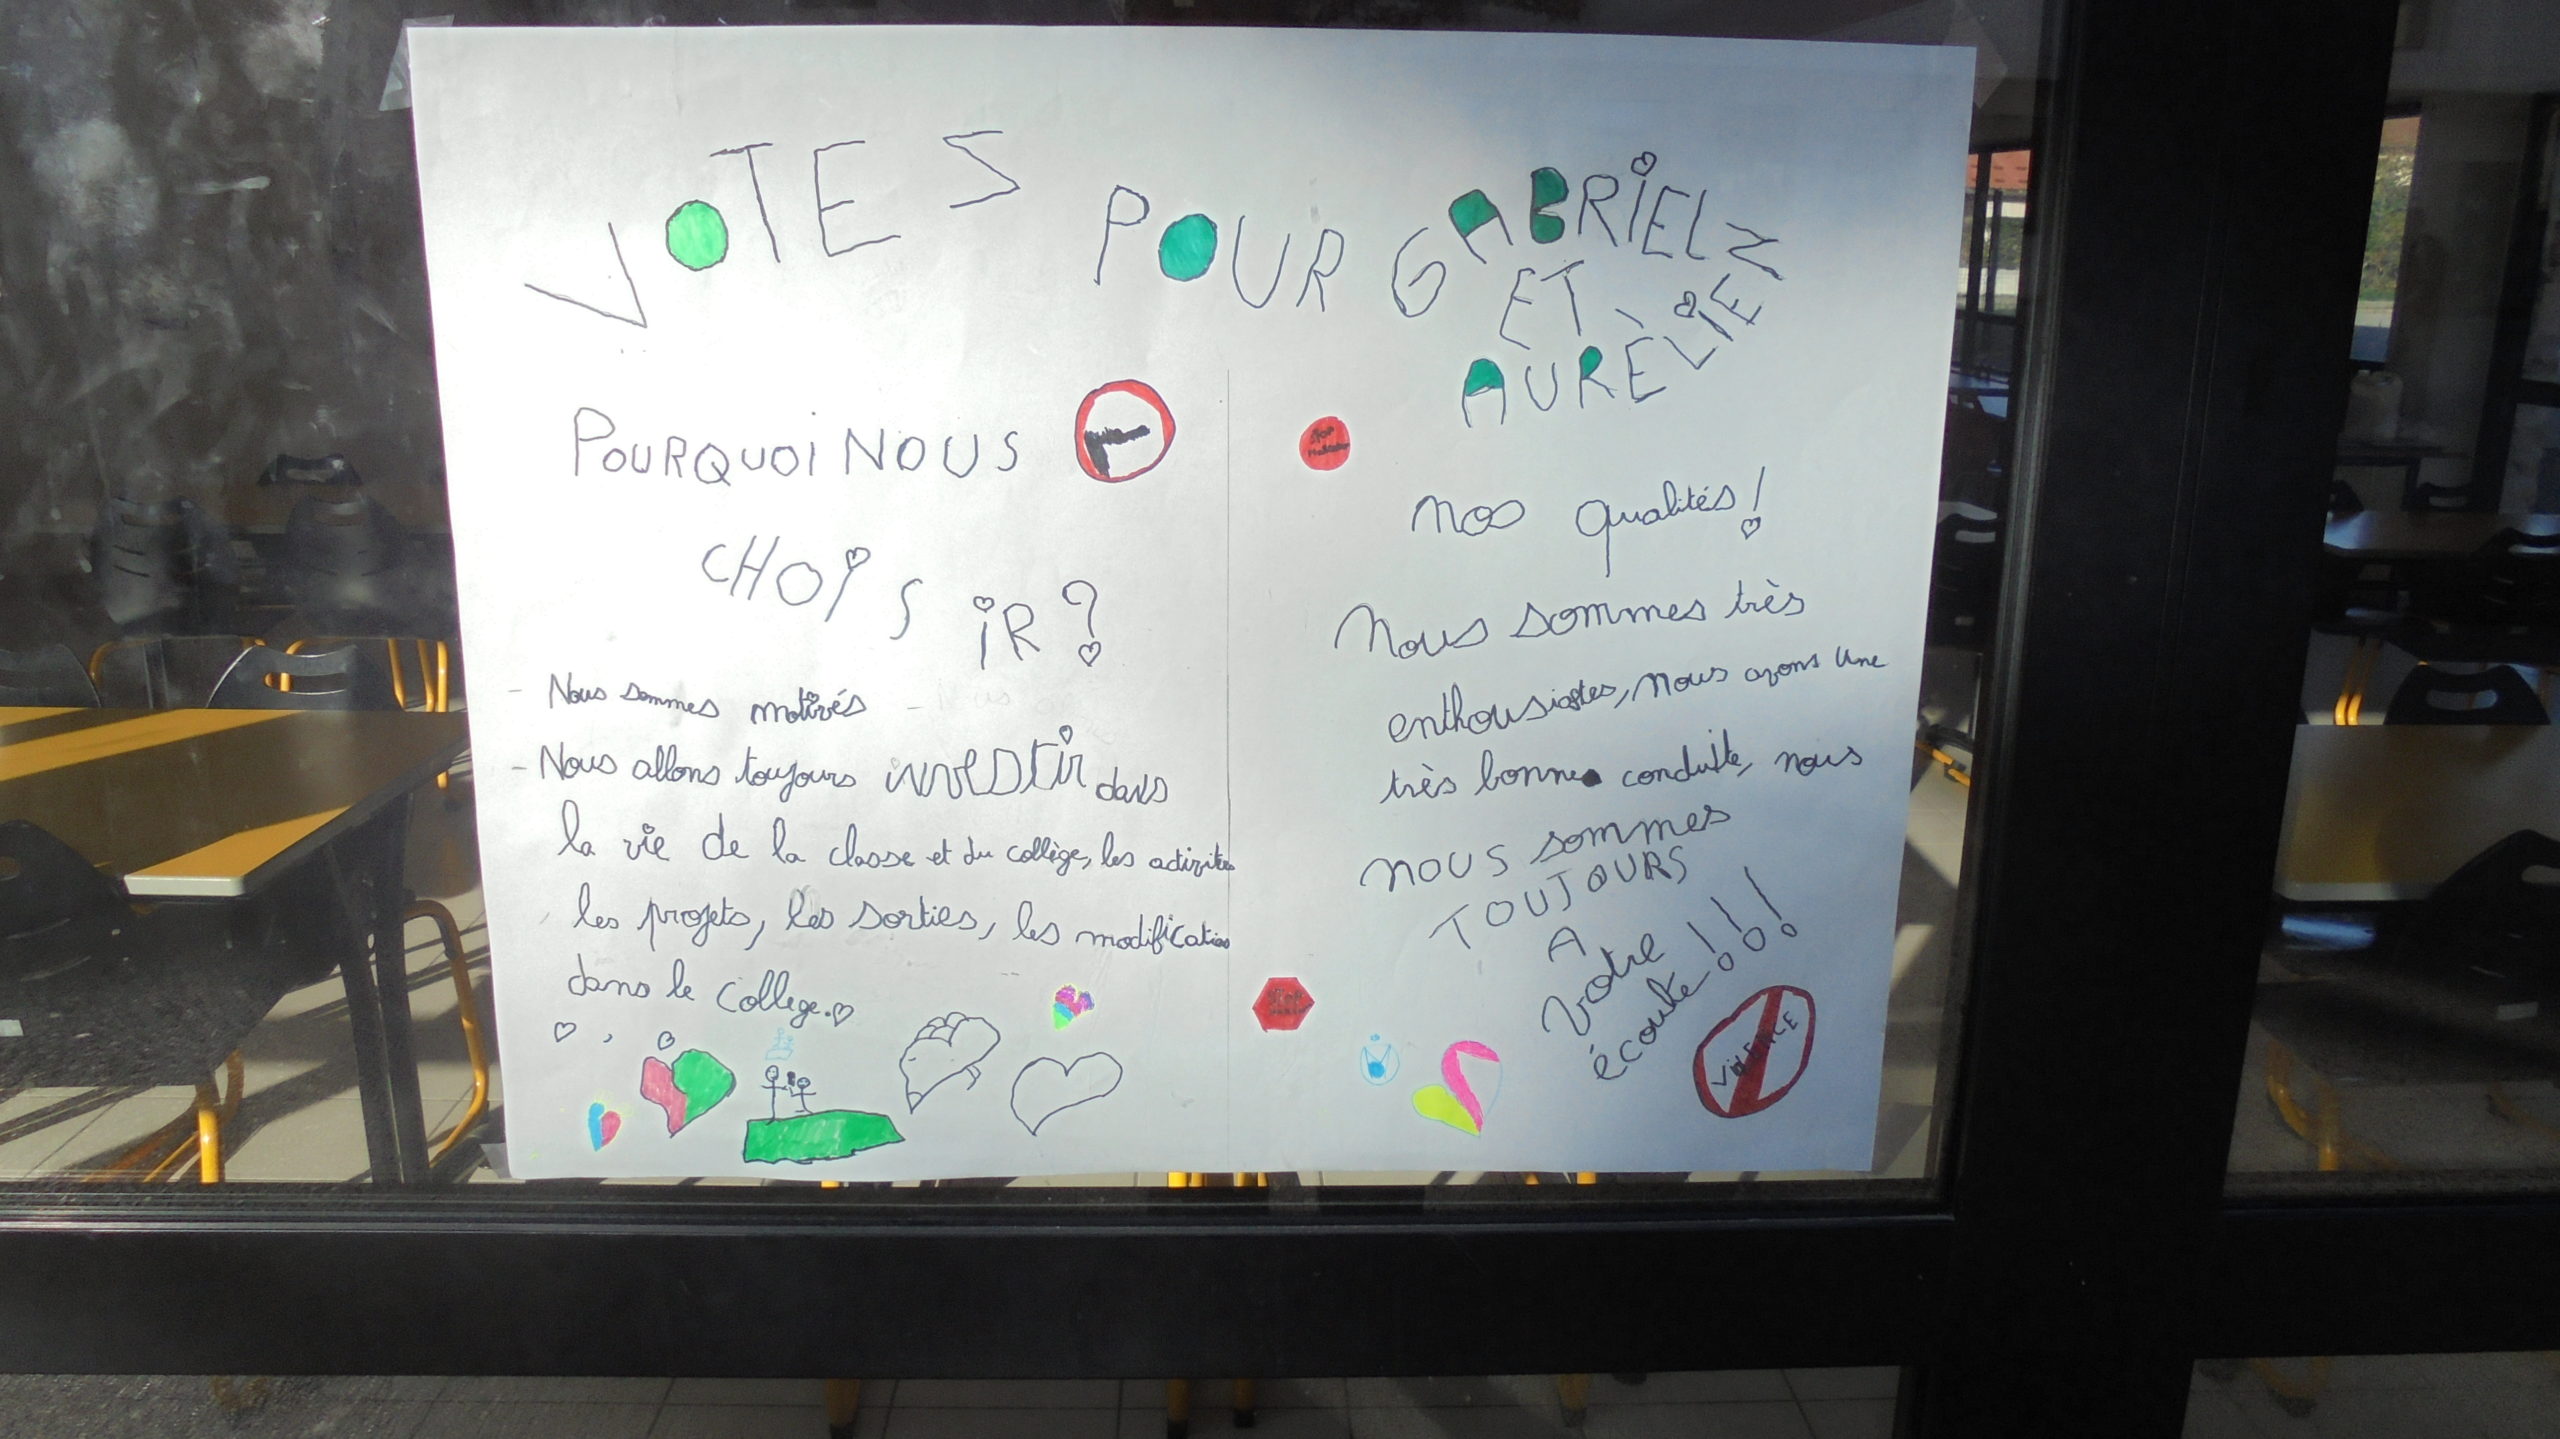 VOTES POUR GABRIEL
ET
AURÈLIEN
POURQUOI NOUS
CHOISIR?
- Nous sommes motivés
- Nous allons toujours investir dans
la vie de la classe et du collège, les activités
les projets, les sorties, les modification
dans le college.
STOP
nos qualités!
Nous sommes très
enthousiastes, nous avons une
très bonne conduite, nous
nous sommes
TOUJOURS
A
votre
écoute!!!
STOP
VIOLENCE